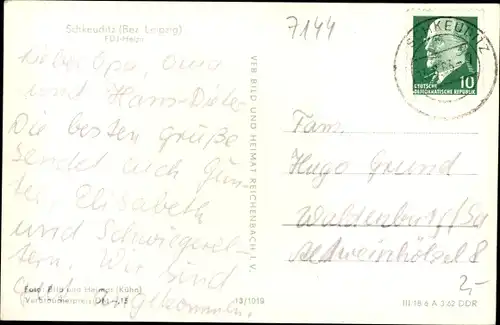 Schkeuditz (Bez. Leipzig)
FDJ-Heim
7144
SCHKEUDITZ
10
DEUTSCHE
DEMOKRATISCHE REPUBLIK
Lieber Opa, Oma
und Hans-Dieter
Die besten Grüße
sendet euch Gün-
ter, Elisabeth
und Schwiegerel-
tern. Wir sind
gut angekommen.
VEB BILD UND HEIMAT REICHENBACH I. V.
Fam.
Hugo Grund
Waldenburg/Sa
Altweinhölzel 8
2,-
Foto: Bild und Heimat (Kühn)
Verbraucherpreis DM
13/1019
III/18 6 A 3 62 DDR